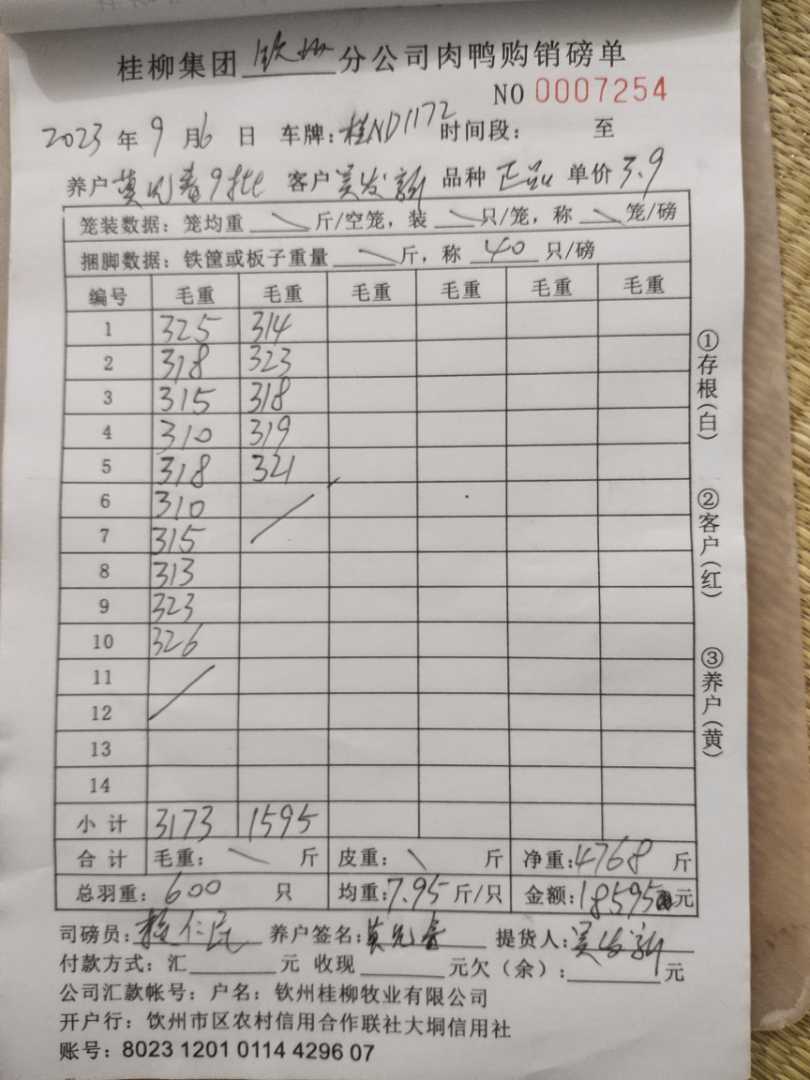 桂柳集团 钦州 分公司肉鸭购销磅单
NO 0007254
2023 年 9 月 6 日 车牌：桂ND1172 时间段： 至
养户 莫光春9批 客户 吴发新 品种 正品 单价 3.9
笼装数据：笼均重 \ 斤/空笼，装 \ 只/笼，称 \ 笼/磅
捆脚数据：铁筐或板子重量 \ 斤，称 40 只/磅
编号 毛重 毛重 毛重 毛重 毛重 毛重
1 325 314
2 318 323
3 315 318
4 310 319
5 318 321
6 310
7 315
8 313
9 323
10 326
11
12
13
14
小计 3173 1595
合计 毛重： \ 斤 皮重： \ 斤 净重：4768 斤
总羽重：600 只 均重：7.95 斤/只 金额：18595 元
司磅员： 仁民 养户签名：莫光春 提货人：吴发新
付款方式：汇 元 收现 元欠（余）： 元
公司汇款帐号：户名：钦州桂柳牧业有限公司
开户行：钦州市区农村信用合作联社大垌信用社
账号：8023 1201 0114 4296 07
①存根（白）
②客户（红）
③养户（黄）